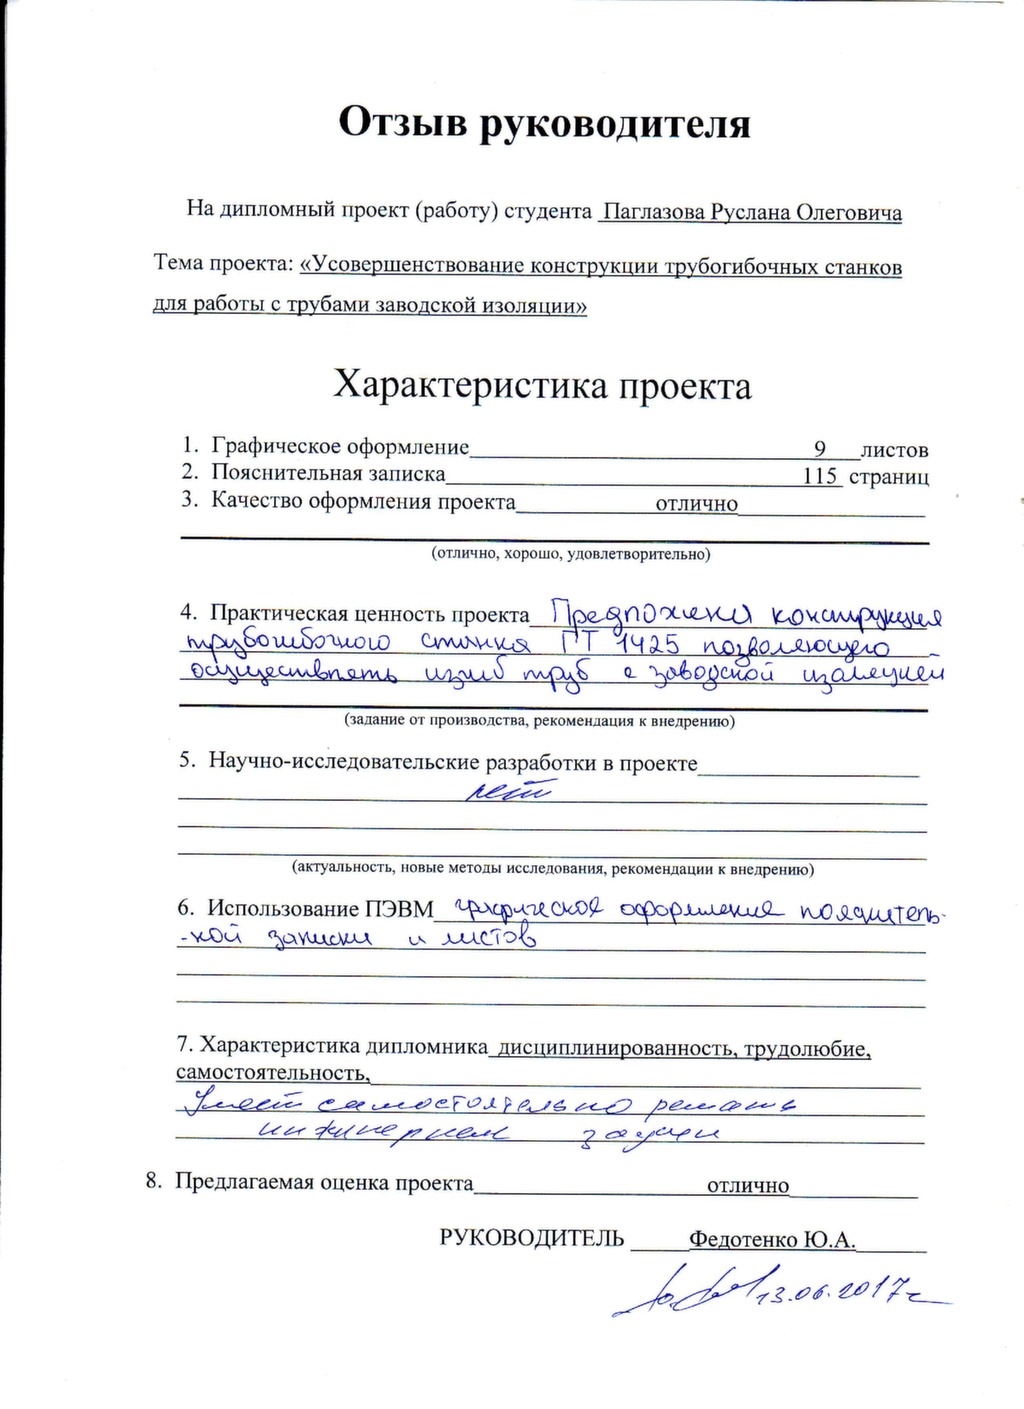 Отзыв руководителя
На дипломный проект (работу) студента Паглазова Руслана Олеговича
Тема проекта: «Усовершенствование конструкции трубогибочных станков
для работы с трубами заводской изоляции»
Характеристика проекта
1. Графическое оформление 9 листов
2. Пояснительная записка 115 страниц
3. Качество оформления проекта отлично
(отлично, хорошо, удовлетворительно)
4. Практическая ценность проекта Предложена конструкция
трубогибочного станка ГТ 1425 позволяющего
осуществлять изгиб труб с заводской изоляцией
(задание от производства, рекомендация к внедрению)
5. Научно-исследовательские разработки в проекте
нет
(актуальность, новые методы исследования, рекомендации к внедрению)
6. Использование ПЭВМ графическое оформление пояснитель-
-ной записки и листов
7. Характеристика дипломника дисциплинированность, трудолюбие,
самостоятельность,
Умеет самостоятельно решать
инженерные задачи
8. Предлагаемая оценка проекта отлично
РУКОВОДИТЕЛЬ Федотенко Ю.А.
13.06.2017г